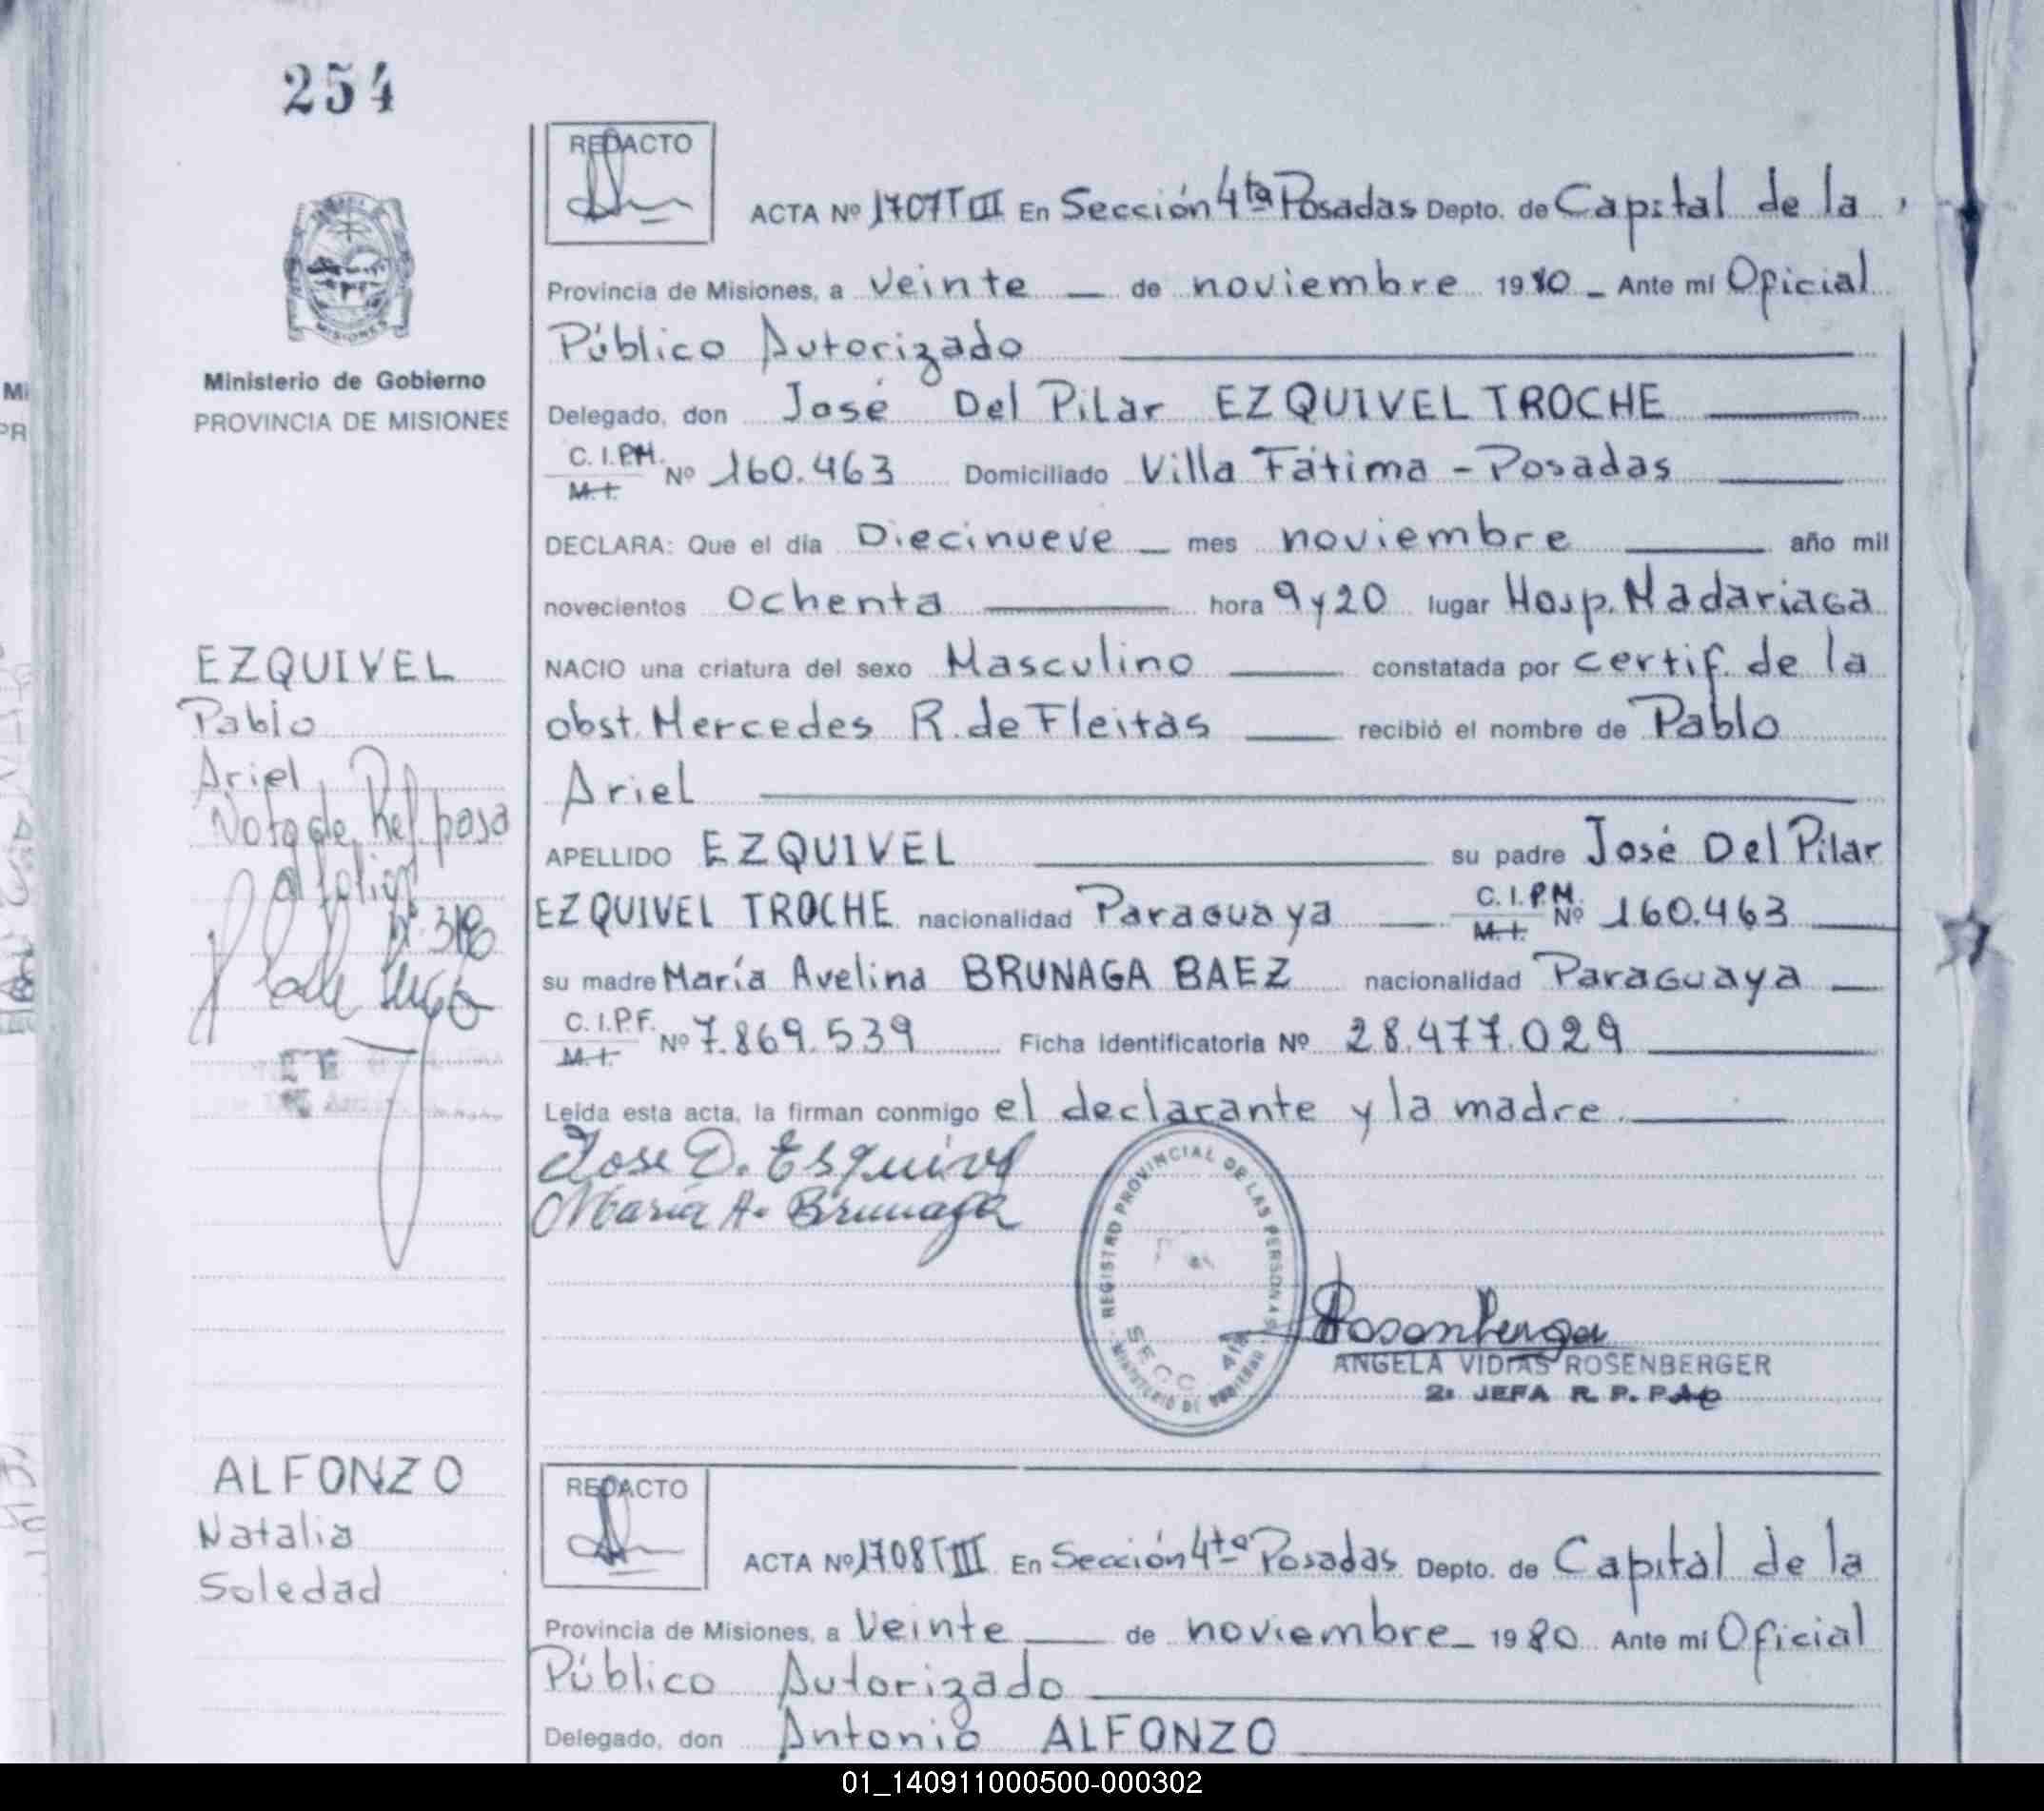 254
REDACTO
ACTA Nº 1707 T III En Sección 4ta Posadas Depto. de Capital de la
Provincia de Misiones, a Veinte — de noviembre 1980 - Ante mi Oficial
Público Autorizado
Ministerio de Gobierno
PROVINCIA DE MISIONES
Delegado, don José Del Pilar EZQUIVEL TROCHE
C.I.P.M. M.I. Nº 160.463 Domiciliado Villa Fátima - Posadas
DECLARA: Que el día Diecinueve — mes noviembre — año mil
novecientos Ochenta — hora 9 y 20 lugar Hosp. Madariaga
EZQUIVEL
Pablo
Ariel
Nota de Ref. pasa
al folio
Nº 318
NACIO una criatura del sexo Masculino — constatada por certif. de la
obst. Mercedes R. de Fleitas — recibió el nombre de Pablo
Ariel
APELLIDO EZQUIVEL — su padre José Del Pilar
EZQUIVEL TROCHE nacionalidad Paraguaya — C.I.P.M. M.I. Nº 160.463
su madre María Avelina BRUNAGA BAEZ nacionalidad Paraguaya —
C.I.P.F. M.I. Nº 7.869.539 Ficha identificatoria Nº 28.477.029
Leída esta acta, la firman conmigo el declarante y la madre.
Jose D. Esquivel
María A. Brunaga
REGISTRO PROVINCIAL DE LAS PERSONAS
MINISTERIO DE
SECC 4ta
Rosenberger
ANGELA VIDIAS ROSENBERGER
2ª JEFA R. P. P.
ALFONZO
Natalia
Soledad
REDACTO
ACTA Nº 1708 T III En Sección 4ta Posadas Depto. de Capital de la
Provincia de Misiones, a Veinte — de noviembre - 1980 Ante mi Oficial
Público Autorizado
Delegado, don Antonio ALFONZO
01_140911000500-000302